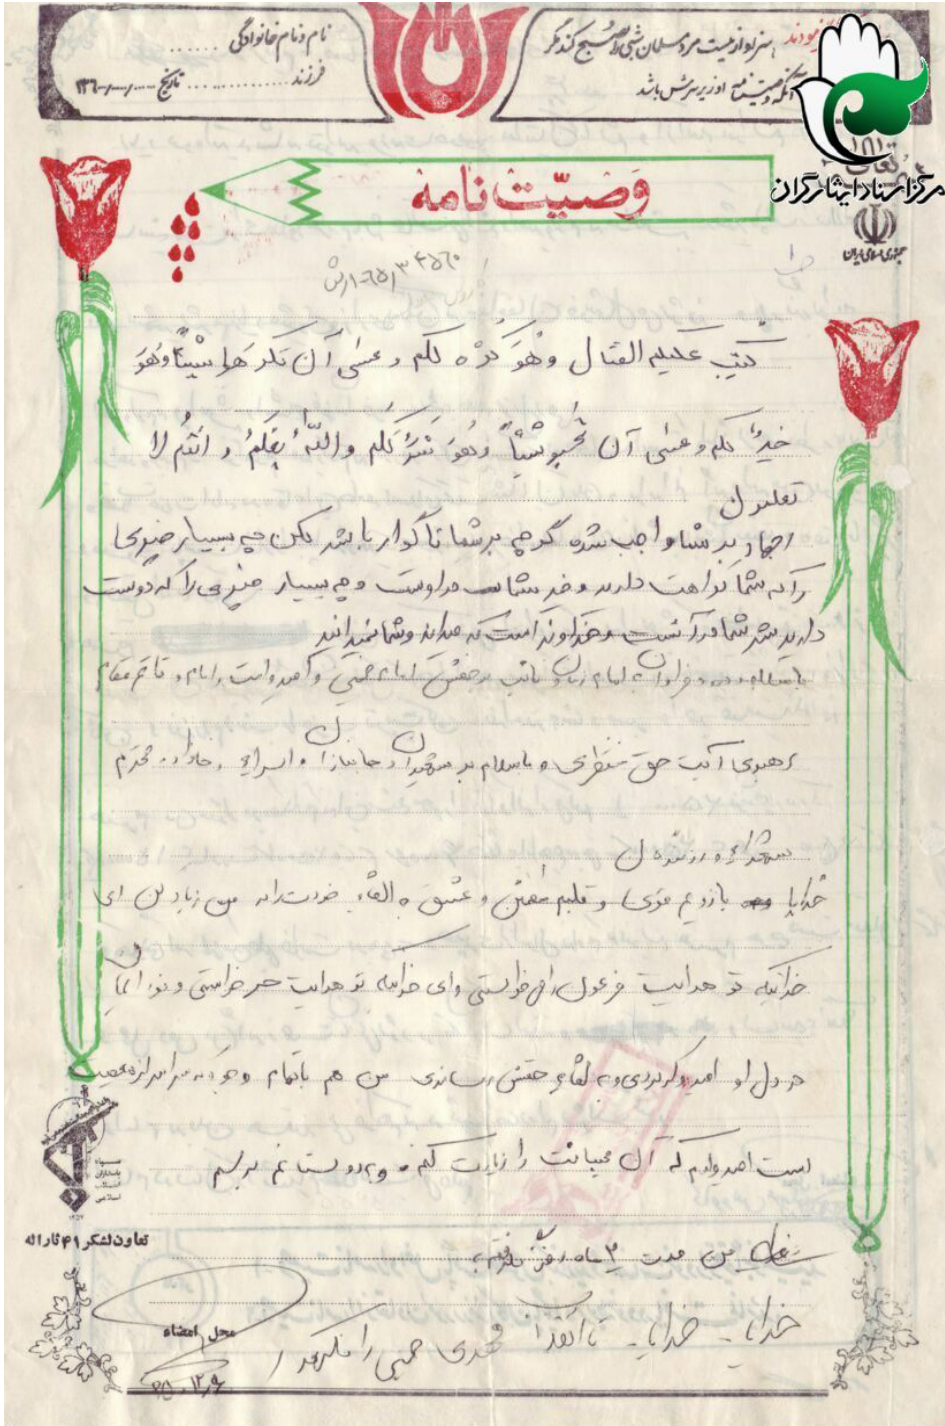 نام و نام خانوادگی ......
فرزند ............... تاریخ ..../..../۱۳۶۰
سزاوار نیست مرد مسلمان شبی را صبح کند مگر
آنکه وصیتنامه او زیر سرش باشد
مرکز اسناد ایثارگران
جمهوری اسلامی ایران
وصیّت نامه
کتب علیکم القتال وهُوَ کُرْه لکم و عسی آن تکرهوا شیئاً وهُوَ
خیرٌ لکم و عسی آن تُحبو شیئاً وهُوَ شَرٌ لکم والله یعلمُ و انتُم لا
تعلمون
جهاد بر شما واجب شده گرچه بر شما ناگوار باشد لکن چه بسیار چیزی
را که شما کراهت دارید و خیر شما در اوست و چه بسیار چیزی را که دوست
دارید شر شما در آنست و خداوند است که میداند و شما نمیدانید
با سلام و درود فراوان به امام زمان و نائب بر حقش امام خمینی و امید امت امام و قائم مقام
رهبری آیت حق منتظری و با سلام بر شهیدان و جانبازان و اسراء و خانواده محترم
شهداء و رزمندگان
خدایا بازویم قوی و قلبم مطمئن و عشق به القاء خودت را در من زیاد کن ای
خدائیکه تو هدایت فرعون را می خواستی و ای خدائیکه تو هدایت حر خواستی و نور ایمان
در دل او امیدوار کردی و به لقاء حقش رساندی من هم با تمام وجودم
است امیدوارم که آن محبانت را زیارت کنم و به دوستانم برسم
من مدت ۳ ماه روزه
خدایا - خدایا - تا انقلاب مهدی خمینی را نگهدار
تعاون لشکر ۴۱ ثارالله
محل امضاء